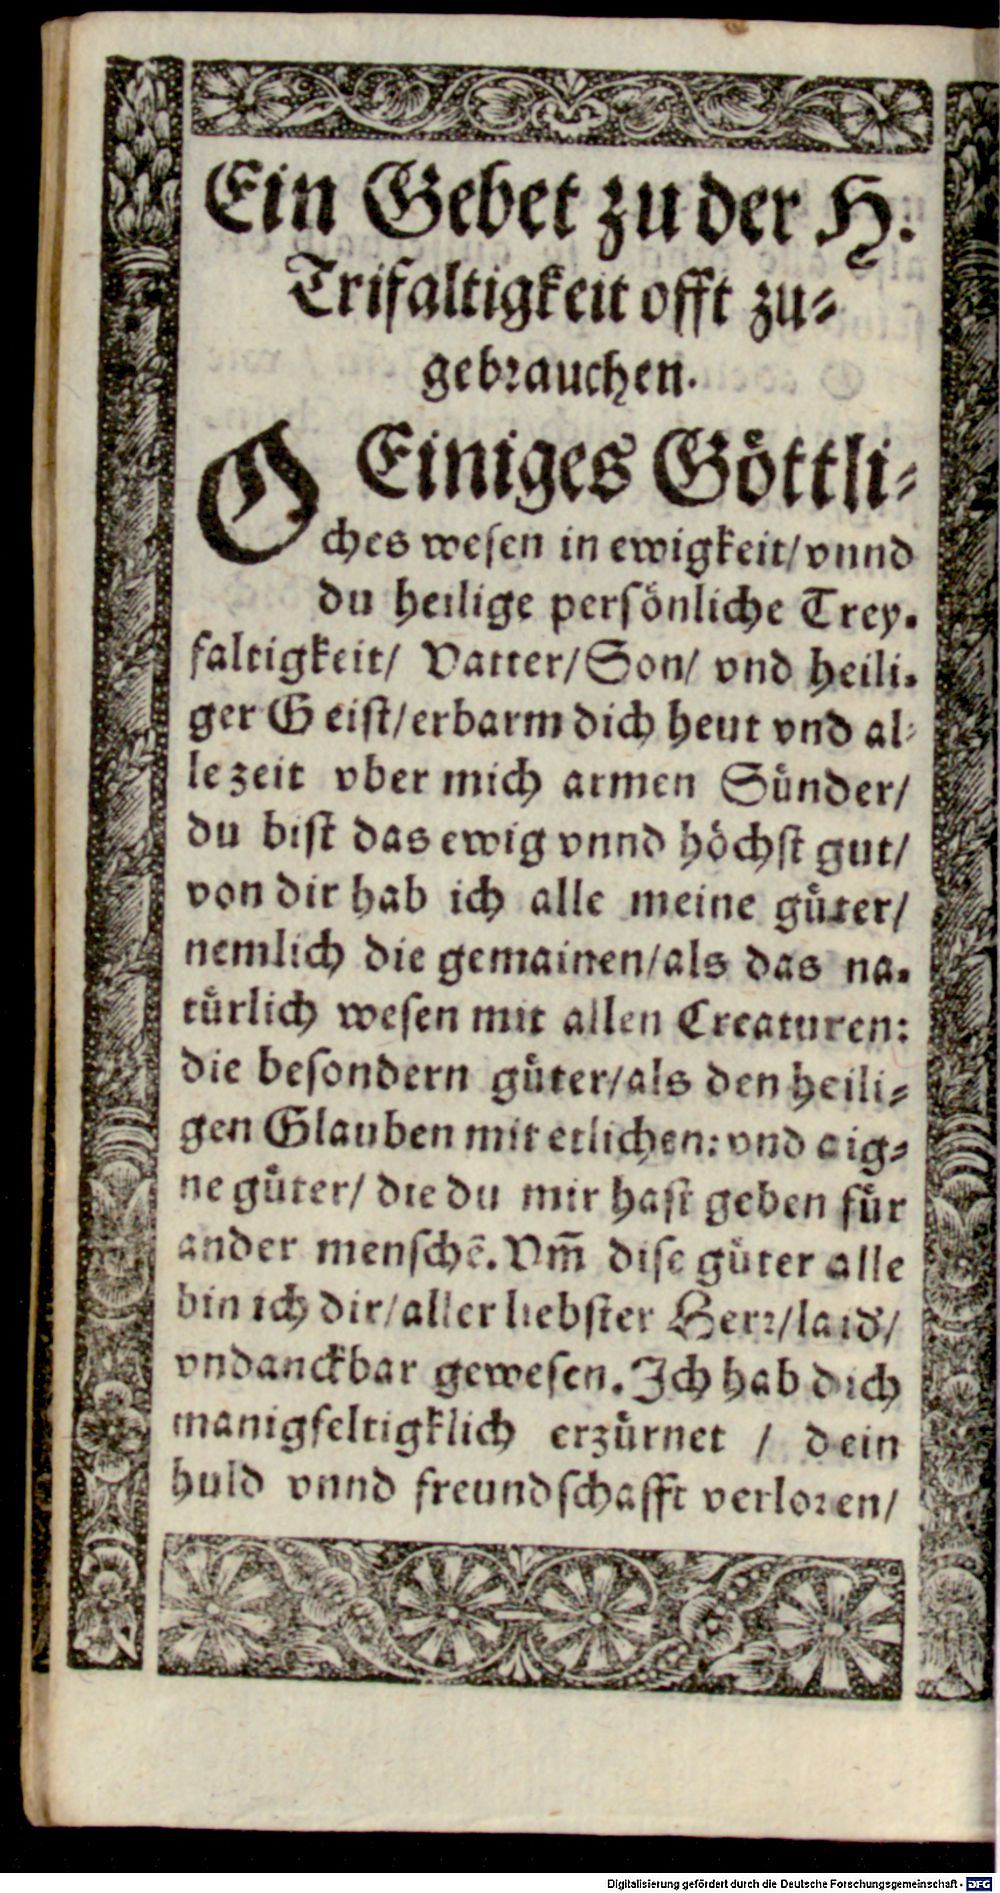 Ein Gebet zu der H.
Trifaltigkeit offt zu⸗
gebrauchen.
O Einiges Göttli⸗
ches wesen in ewigkeit/ vnnd
du heilige persönliche Trey.
faltigkeit/ Vatter/ Son/ vnd heili.
ger Geist/ erbarm dich heut vnd al⸗
le zeit vber mich armen Sünder/
du bist das ewig vnnd höchst gut/
von dir hab ich alle meine güter/
nemlich die gemainen/ als das na.
türlich wesen mit allen Creaturen:
die besondern güter/ als den heili⸗
gen Glauben mit etlichen: vnd aig⸗
ne güter/ die du mir hast geben für
ander menschẽ. Vm̃ dise güter alle
bin ich dir/ aller liebster Herr/ laid/
vndanckbar gewesen. Ich hab dich
manigfeltigklich erzürnet / dein
huld vnnd freundschafft verloren/
Digitalisierung gefördert durch die Deutsche Forschungsgemeinschaft - DFG